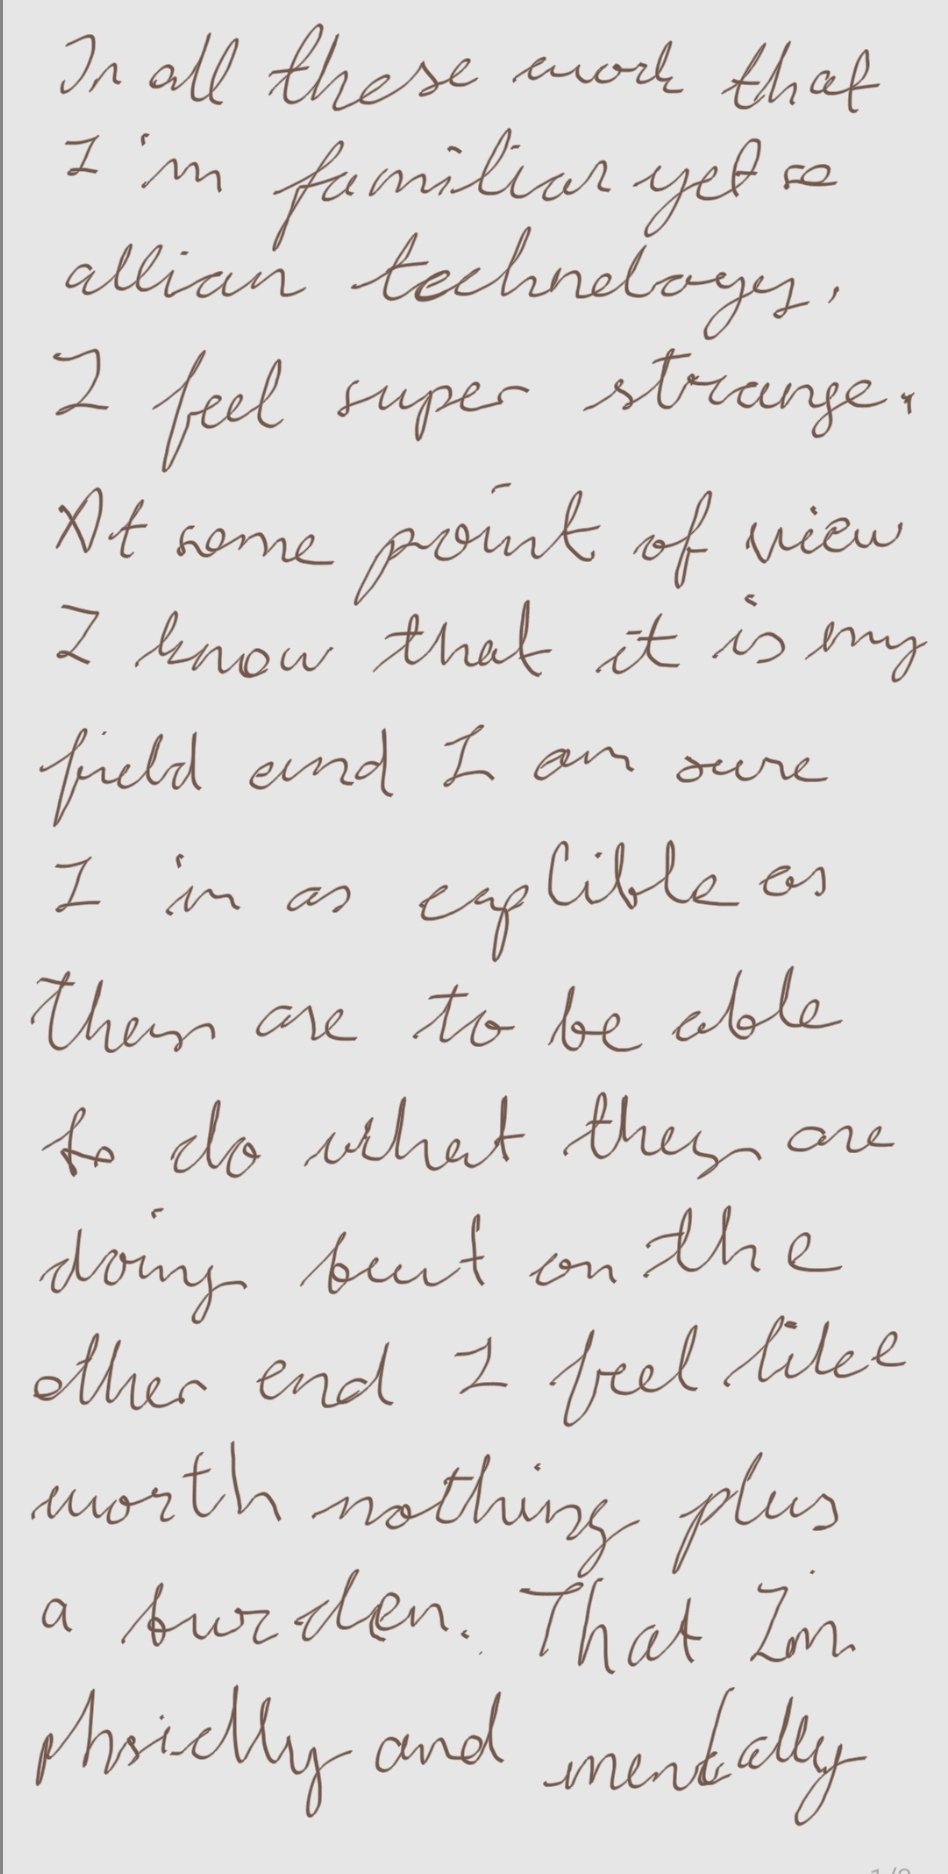 In all these work that
I'm familiar yet so
allian technology,
I feel super strange.
At some point of view
I know that it is my
field and I am sure
I'm as caplible as
they are to be able
to do what they are
doing but on the
other end I feel like
worth nothing plus
a burden. That I'm
phsiclly and mentally